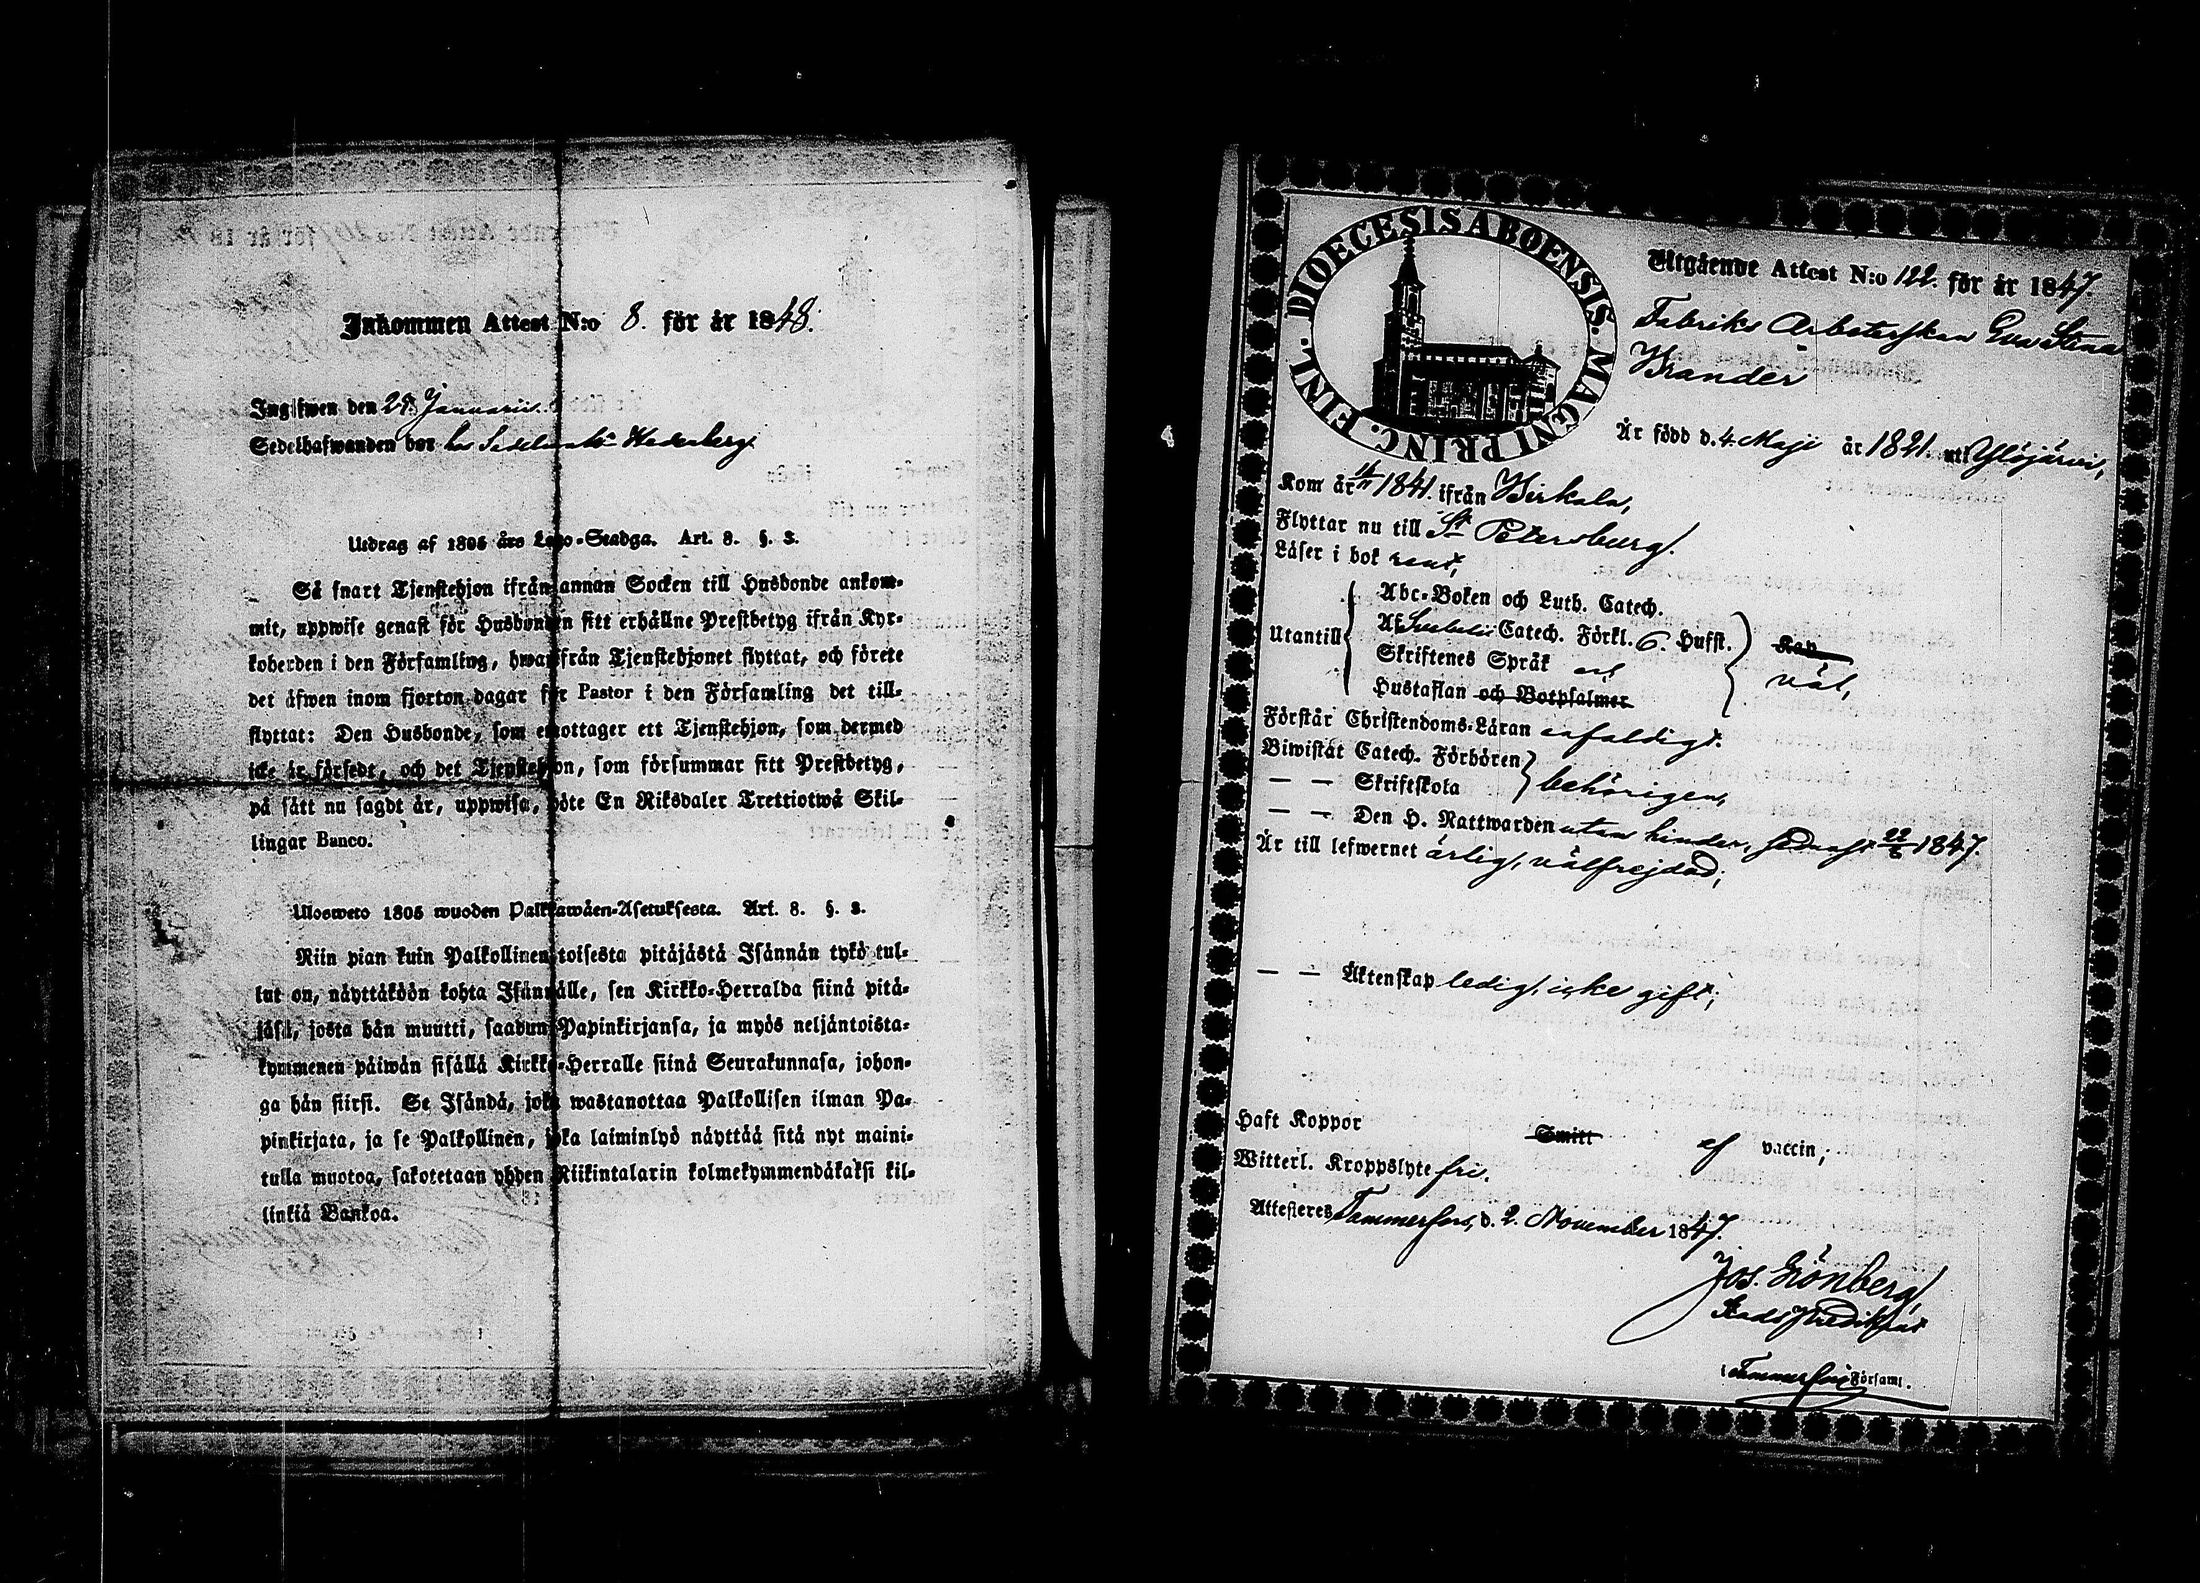 Inkommen Attest N:o 8. för år 1848.
Ingifwen den 25 Januarii
Sedelhafwanden bor hos Hederberg
Utdrag af 1805 års Lego-Stadga. Art. 8. §. 3.
Så snart Tjenstehjon ifrån annan Socken till Husbonde ankom-
mit, uppwise genast för Husbonden sitt erhållne Prestbetyg ifrån Kyr-
koherden i den Församling, hwarifrån Tjenstehjonet flyttat, och förete
det äfwen inom fjorton dagar för Pastor i den Församling det till-
flyttat: Den Husbonde, som emottager ett Tjenstehjon, som dermed
icke är försedt, och det Tjenstehjon, som försummar sitt Prestbetyg,
på sätt nu sagdt är, uppwisa, böte En Riksdaler Trettiotwå Skil-
lingar Banco.
Ulosweto 1805 wuoden Palkkawäen-Asetuksesta. Art. 8. §. 3.
Niin pian kuin Palkollinen toisesta pitäjästä Isännän tykö tul-
lut on, näyttäköön kohta Isännälle, sen Kirkko-Herralda siinä pitä-
jäsä, josta hän muutti, saadun Papinkirjansa, ja myös neljäntoista-
kymmenen päiwän sisällä Kirkko-Herralle siinä Seurakunnasa, johon-
ga hän siirsi. Se Isändä, joka wastanottaa Palkollisen ilman Pa-
pinkirjata, ja se Palkollinen, joka laiminlyö näyttää sitä nyt maini-
tulla muotoa, sakotetaan yhden Riikintalarin kolmekymmendäkaksi kil-
linkiä Bankoa.
FINL. DIOECESIS ABOENSIS. MAGNI PRINC.
Utgående Attest N:o 122. för år 1847.
Fabriks Arbeterskan Eva Stina
Brander
Är född d. 4 Maji år 1821. uti Ylöjärvi,
Kom år 1841. ifrån Birkala,
Flyttar nu till St Petersburg.
Läser i bok rent,
Utantill
Abc-Boken och Luth. Catech.
Af Svebelii Catech. Förkl. 6. Hufst.
Skriftenes Språk
Hustaflan och Botpsalmer
Kan
väl,
Förstår Christendoms-Läran enfaldigt.
Biwistat Catech. Förhören
— — Skriftskola
behörigen,
— — Den H. Nattwarden utan hinder, senast 22/8 1847.
Är till lefwernet ärlig, välfrejdad;
— — Äktenskap ledig, icke gift;
Haft Koppor Smitt af vaccin;
Witterl. Kroppslyte fri.
Attesteres Tammerfors, d. 2. November 1847.
Jos. Grönberg,
Stads Predikant
i Tammerfors Församl.